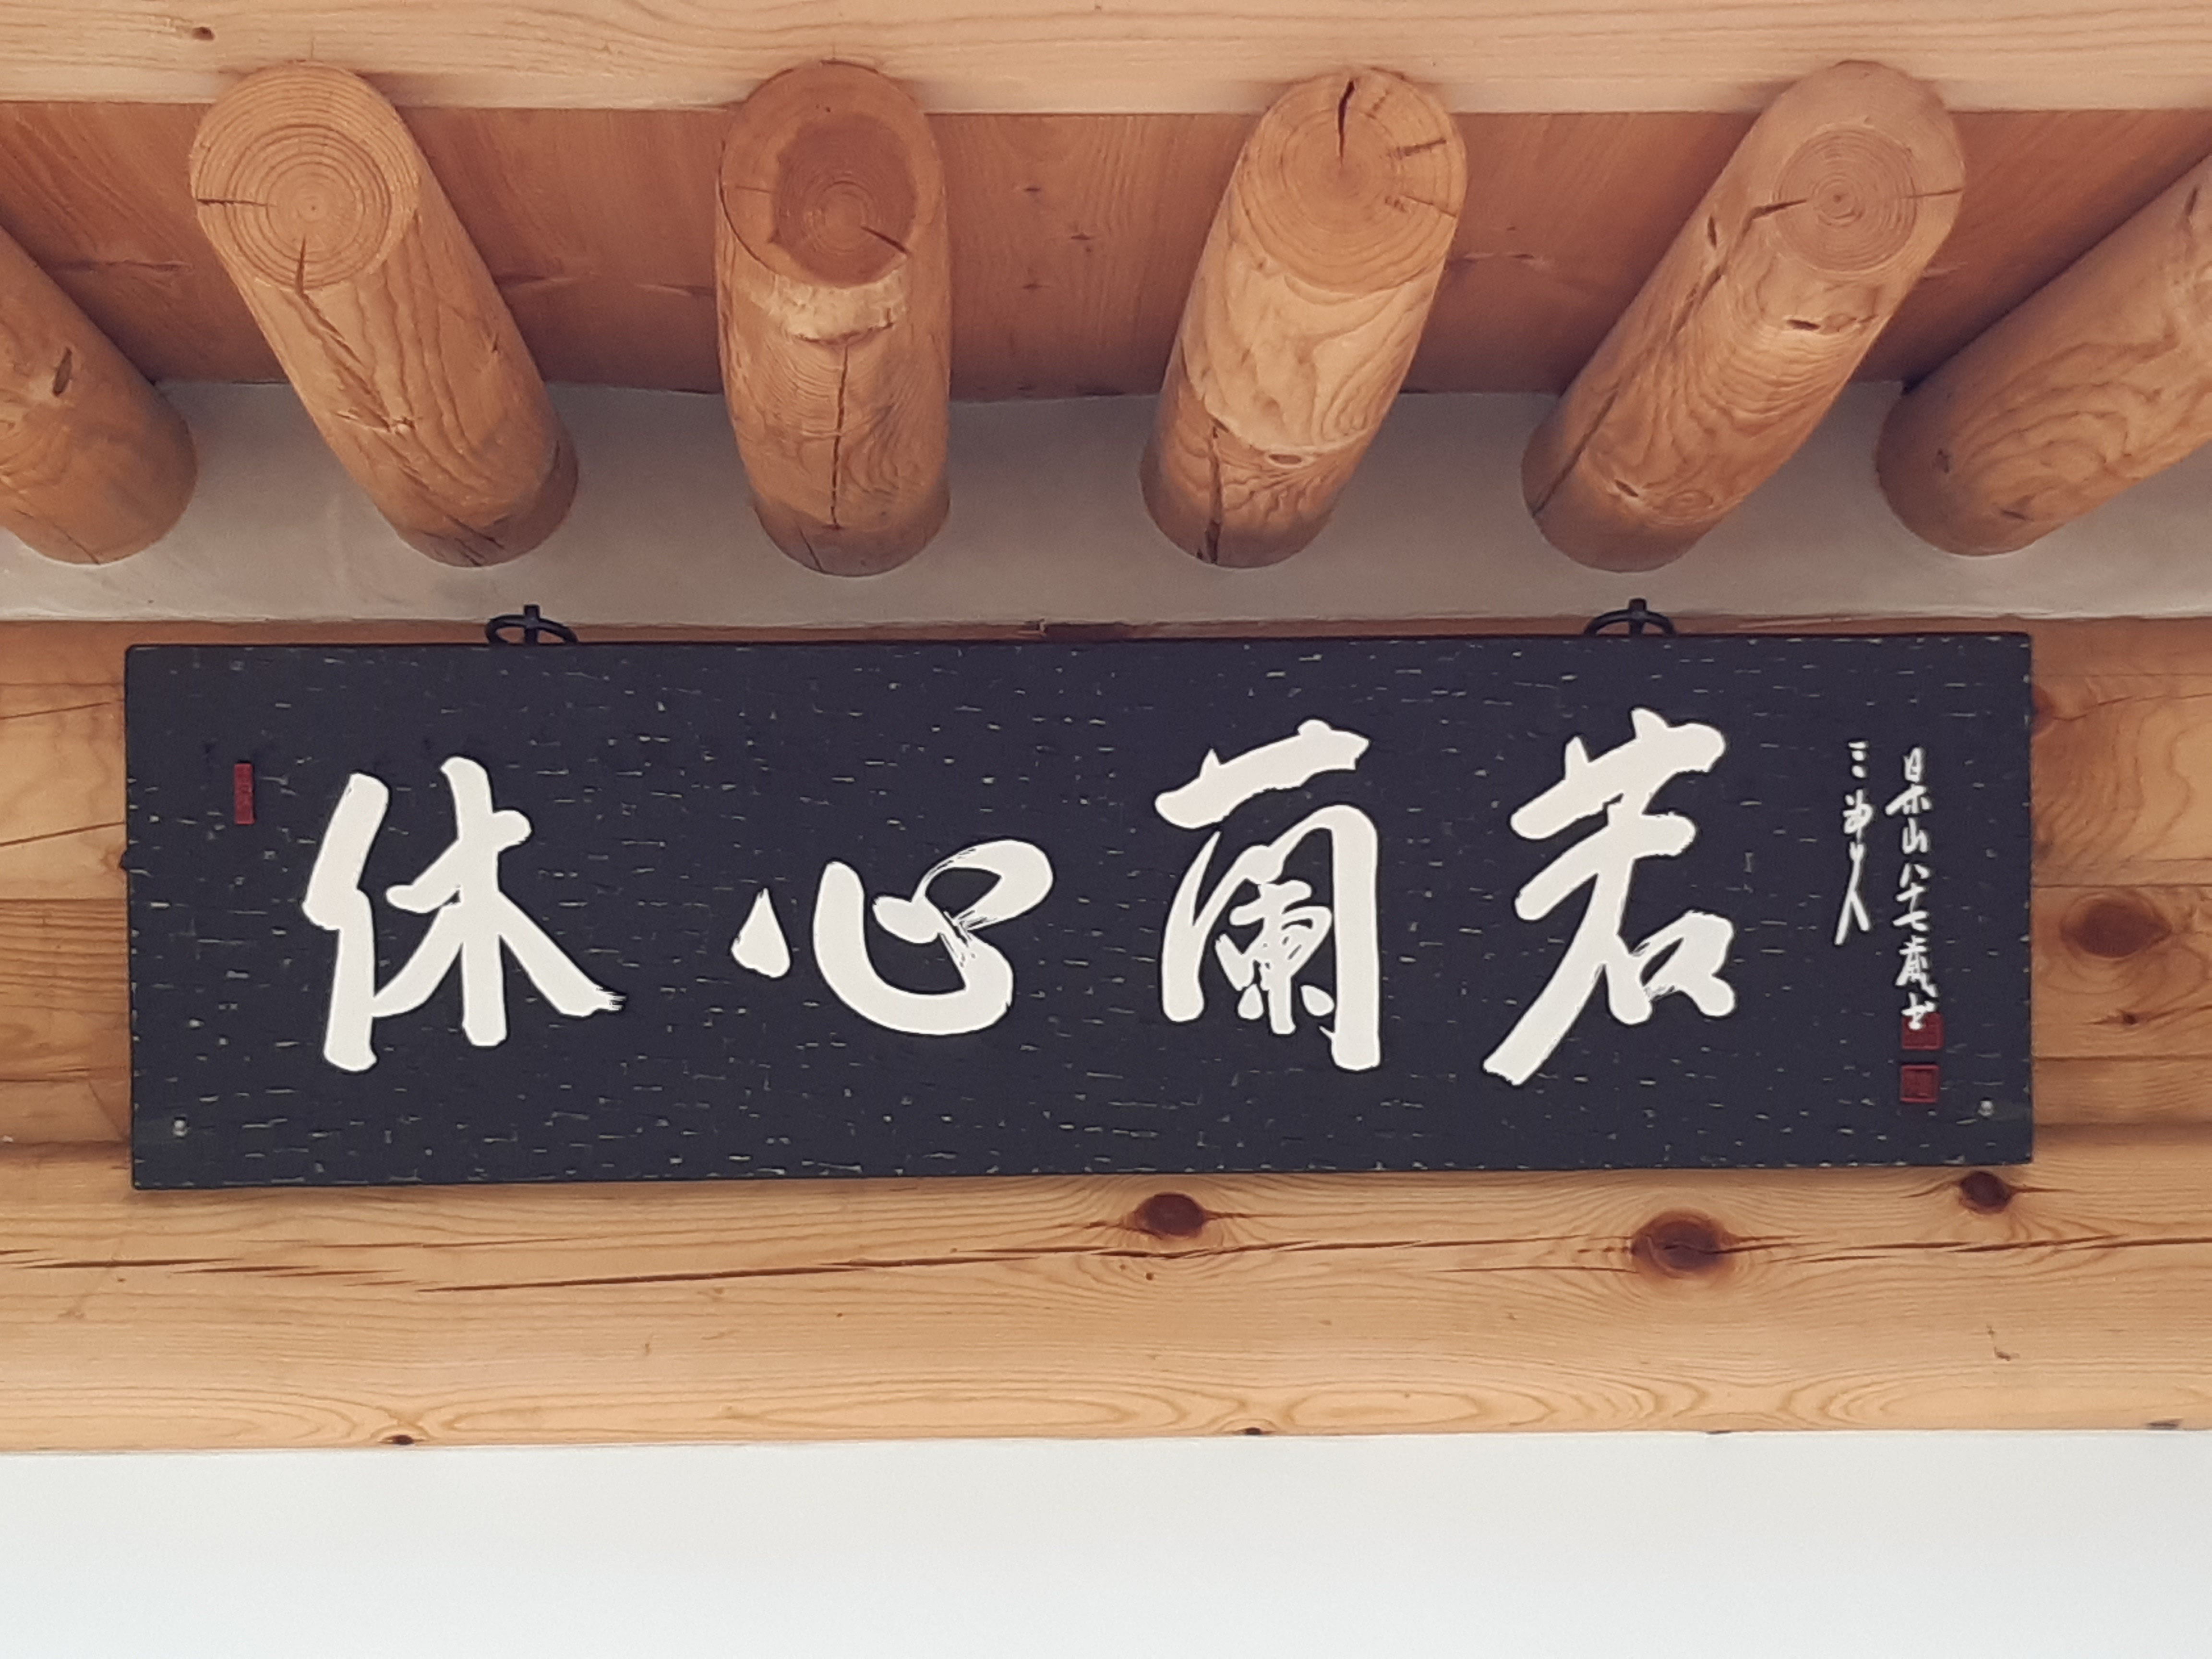 若蘭心休
日木山八十七歲書
三神山人